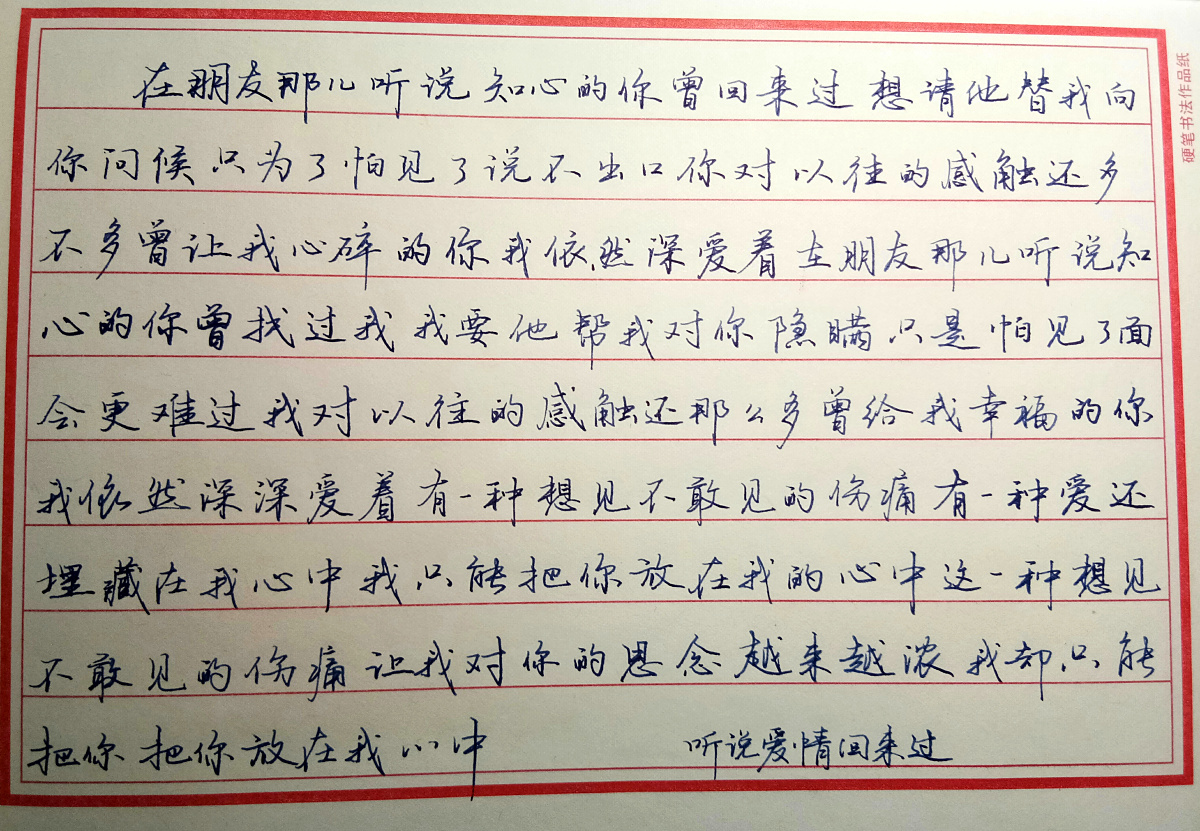 在朋友那儿听说知心的你曾回来过想请他替我向
你问候只为了怕见了说不出口你对以往的感触还多
不多曾让我心碎的你我依然深爱着在朋友那儿听说知
心的你曾找过我我要他帮我对你隐瞒只是怕见了面
会更难过我对以往的感触还那么多曾给我幸福的你
我依然深深爱着有一种想见不敢见的伤痛有一种爱还
埋藏在我心中我只能把你放在我的心中这一种想见
不敢见的伤痛让我对你的思念越来越浓我却只能
把你把你放在我心中
听说爱情回来过
硬笔书法作品纸